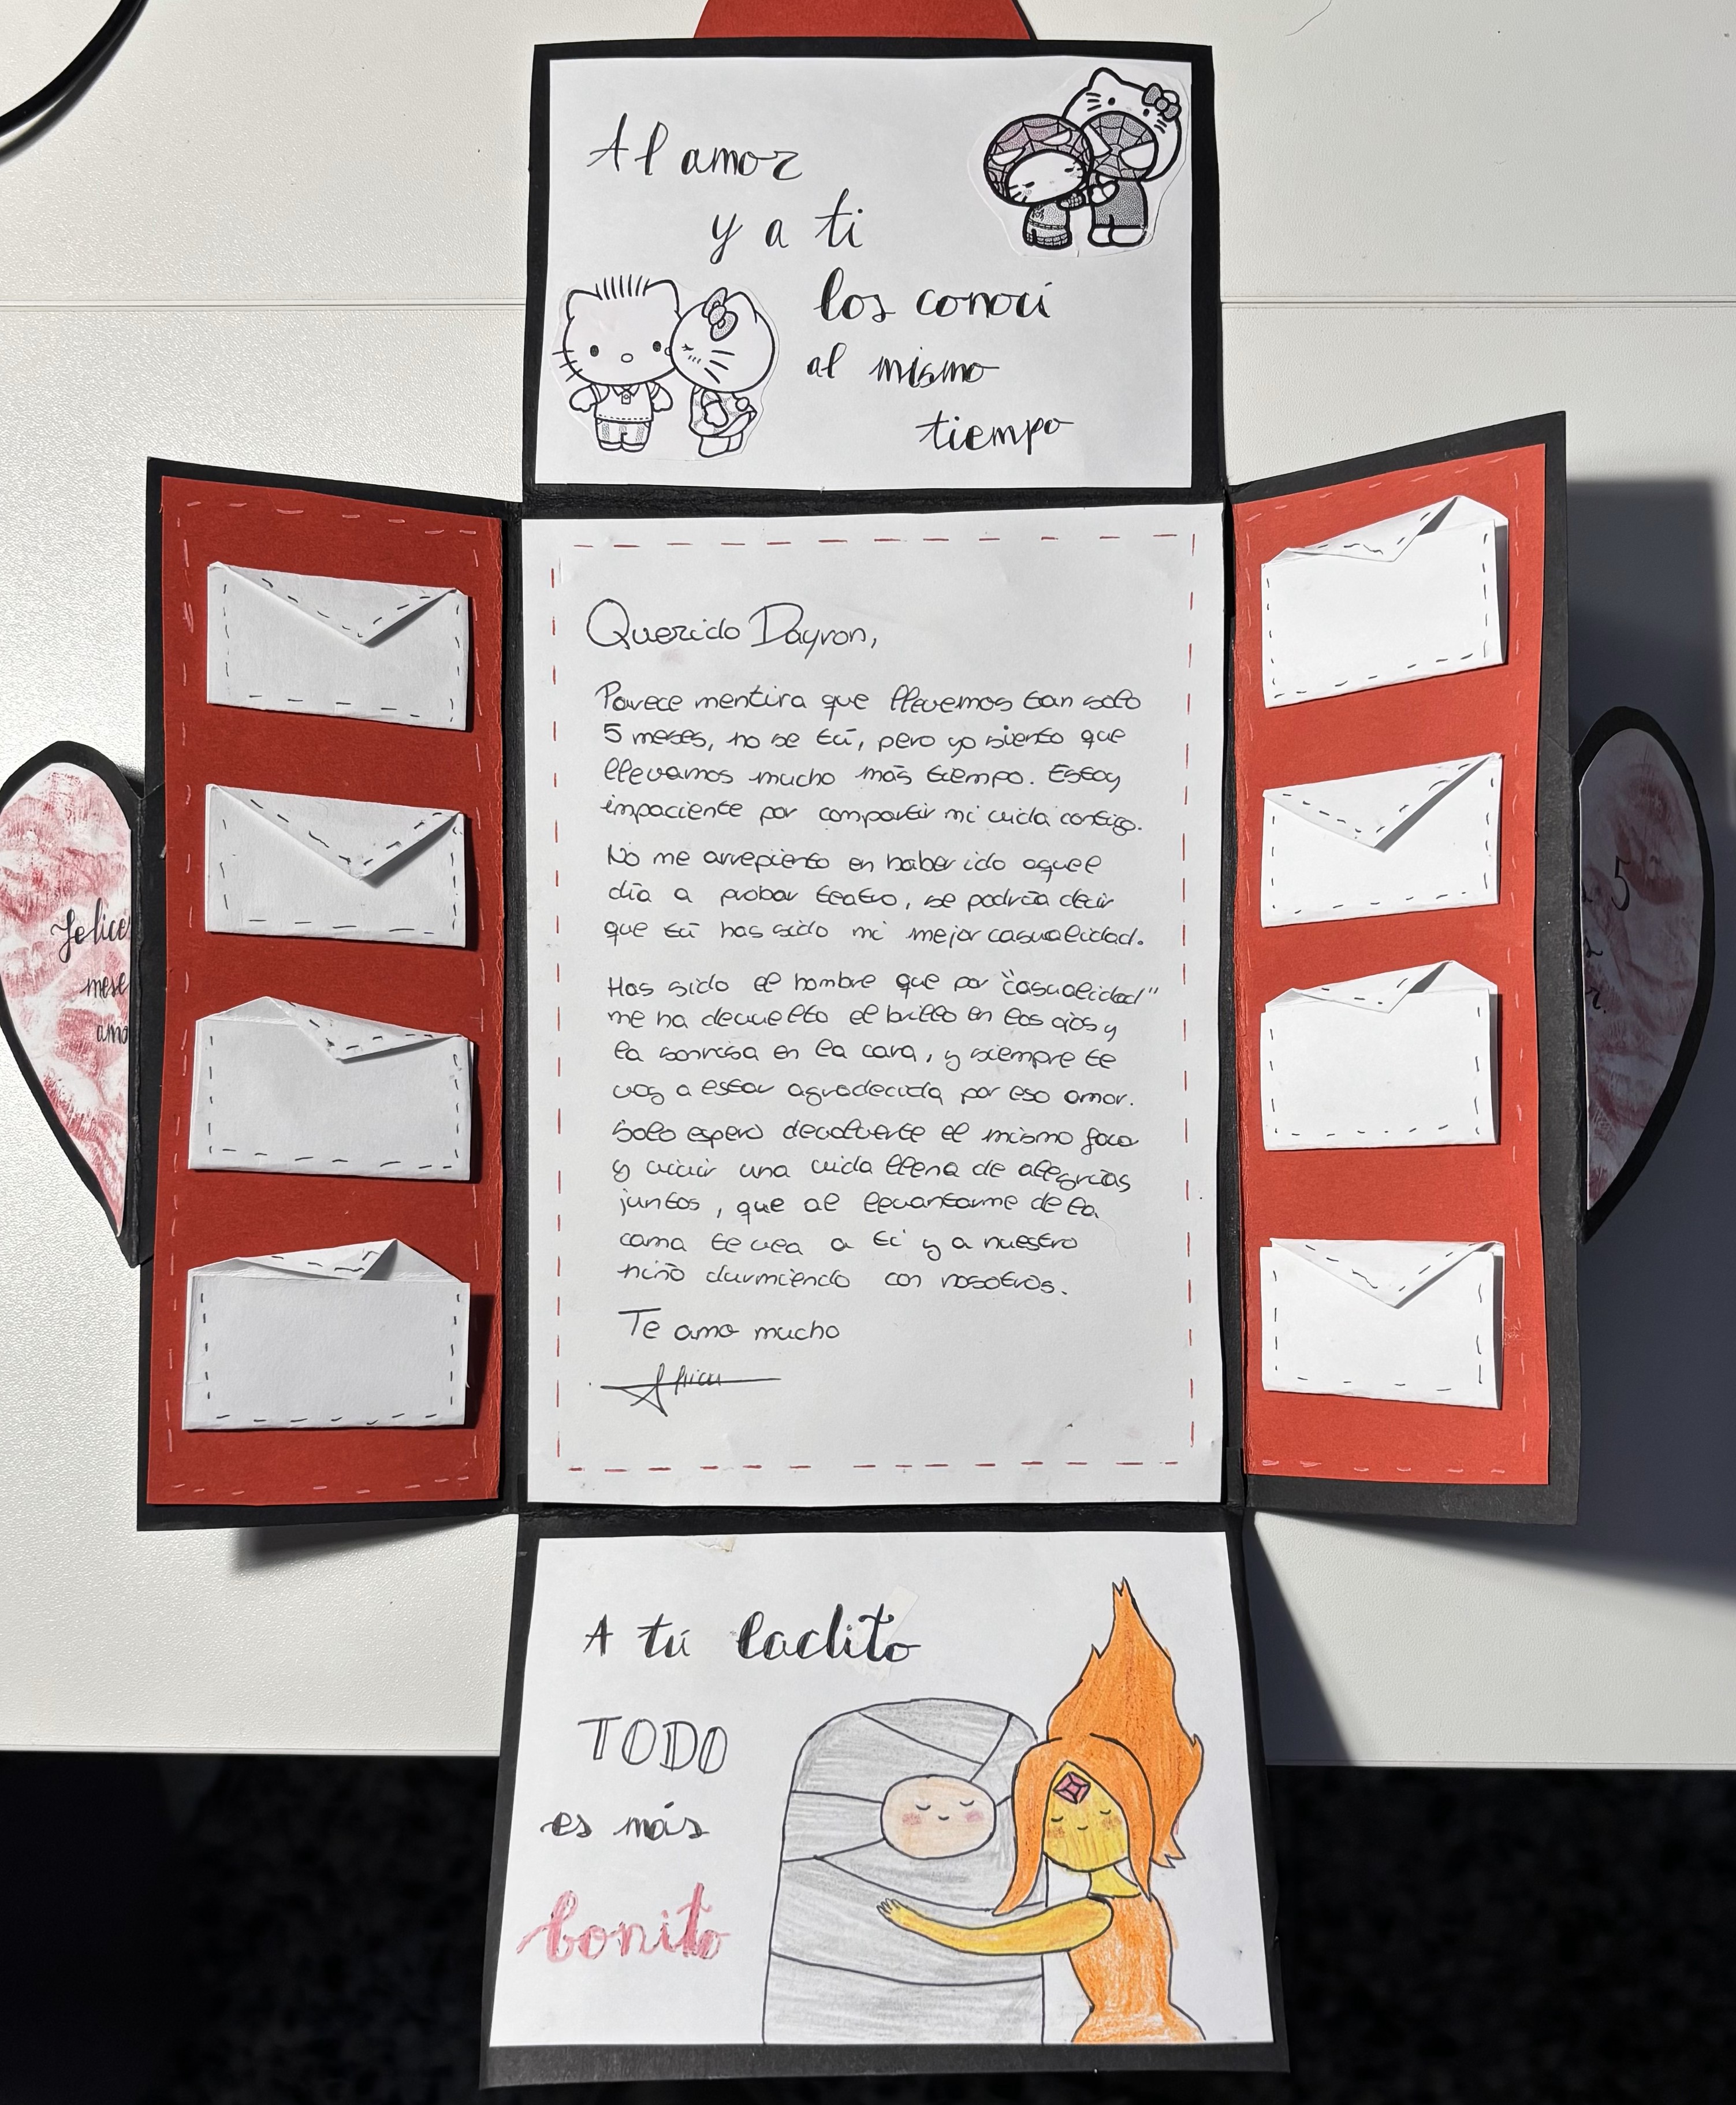 Al amor
y a ti
los conocí
al mismo
tiempo
Querido Dayron,
Parece mentira que llevemos tan solo
5 meses, no se tú, pero yo siento que
llevamos mucho más tiempo. Estoy
impaciente por compartir mi vida contigo.
No me arrepiento en haber ido aquel
día a probar teatro, se podría decir
que tú has sido mi mejor casualidad.
Has sido el hombre que por "casualidad"
me ha devuelto el brillo en los ojos y
la sonrisa en la cara, y siempre te
voy a estar agradecida por eso amor.
Solo espero devolverte el mismo favor
y vivir una vida llena de alegrías
juntos, que al levantarme de la
cama te vea a ti y a nuestro
niño durmiendo con nosotros.
Te amo mucho
A tú ladito
TODO
es más
bonito
felices
mese
amo
5